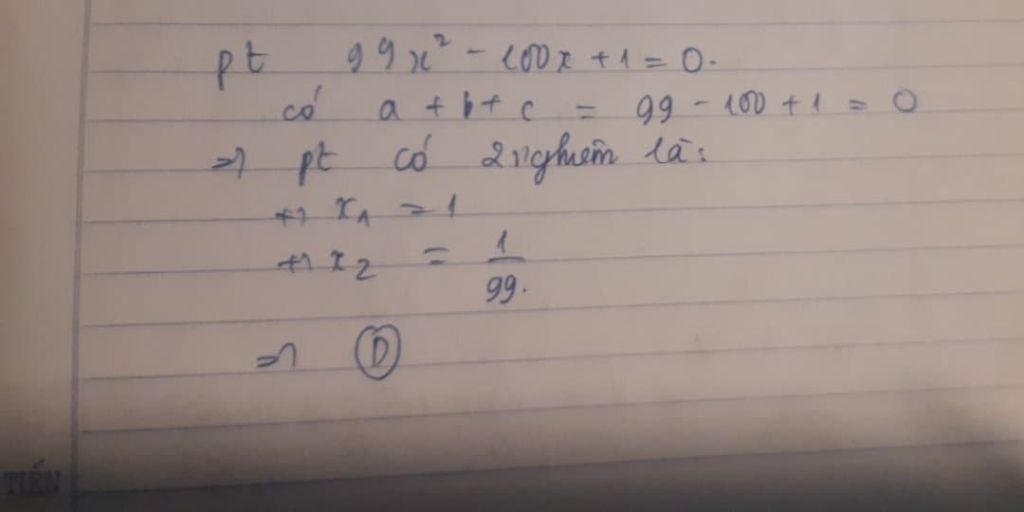 pt 99x² - 100x + 1 = 0.
có a + b + c = 99 - 100 + 1 = 0
=> pt có 2 nghiệm là:
+) x₁ = 1
+) x₂ = 1/99.
=> D
TIẾN